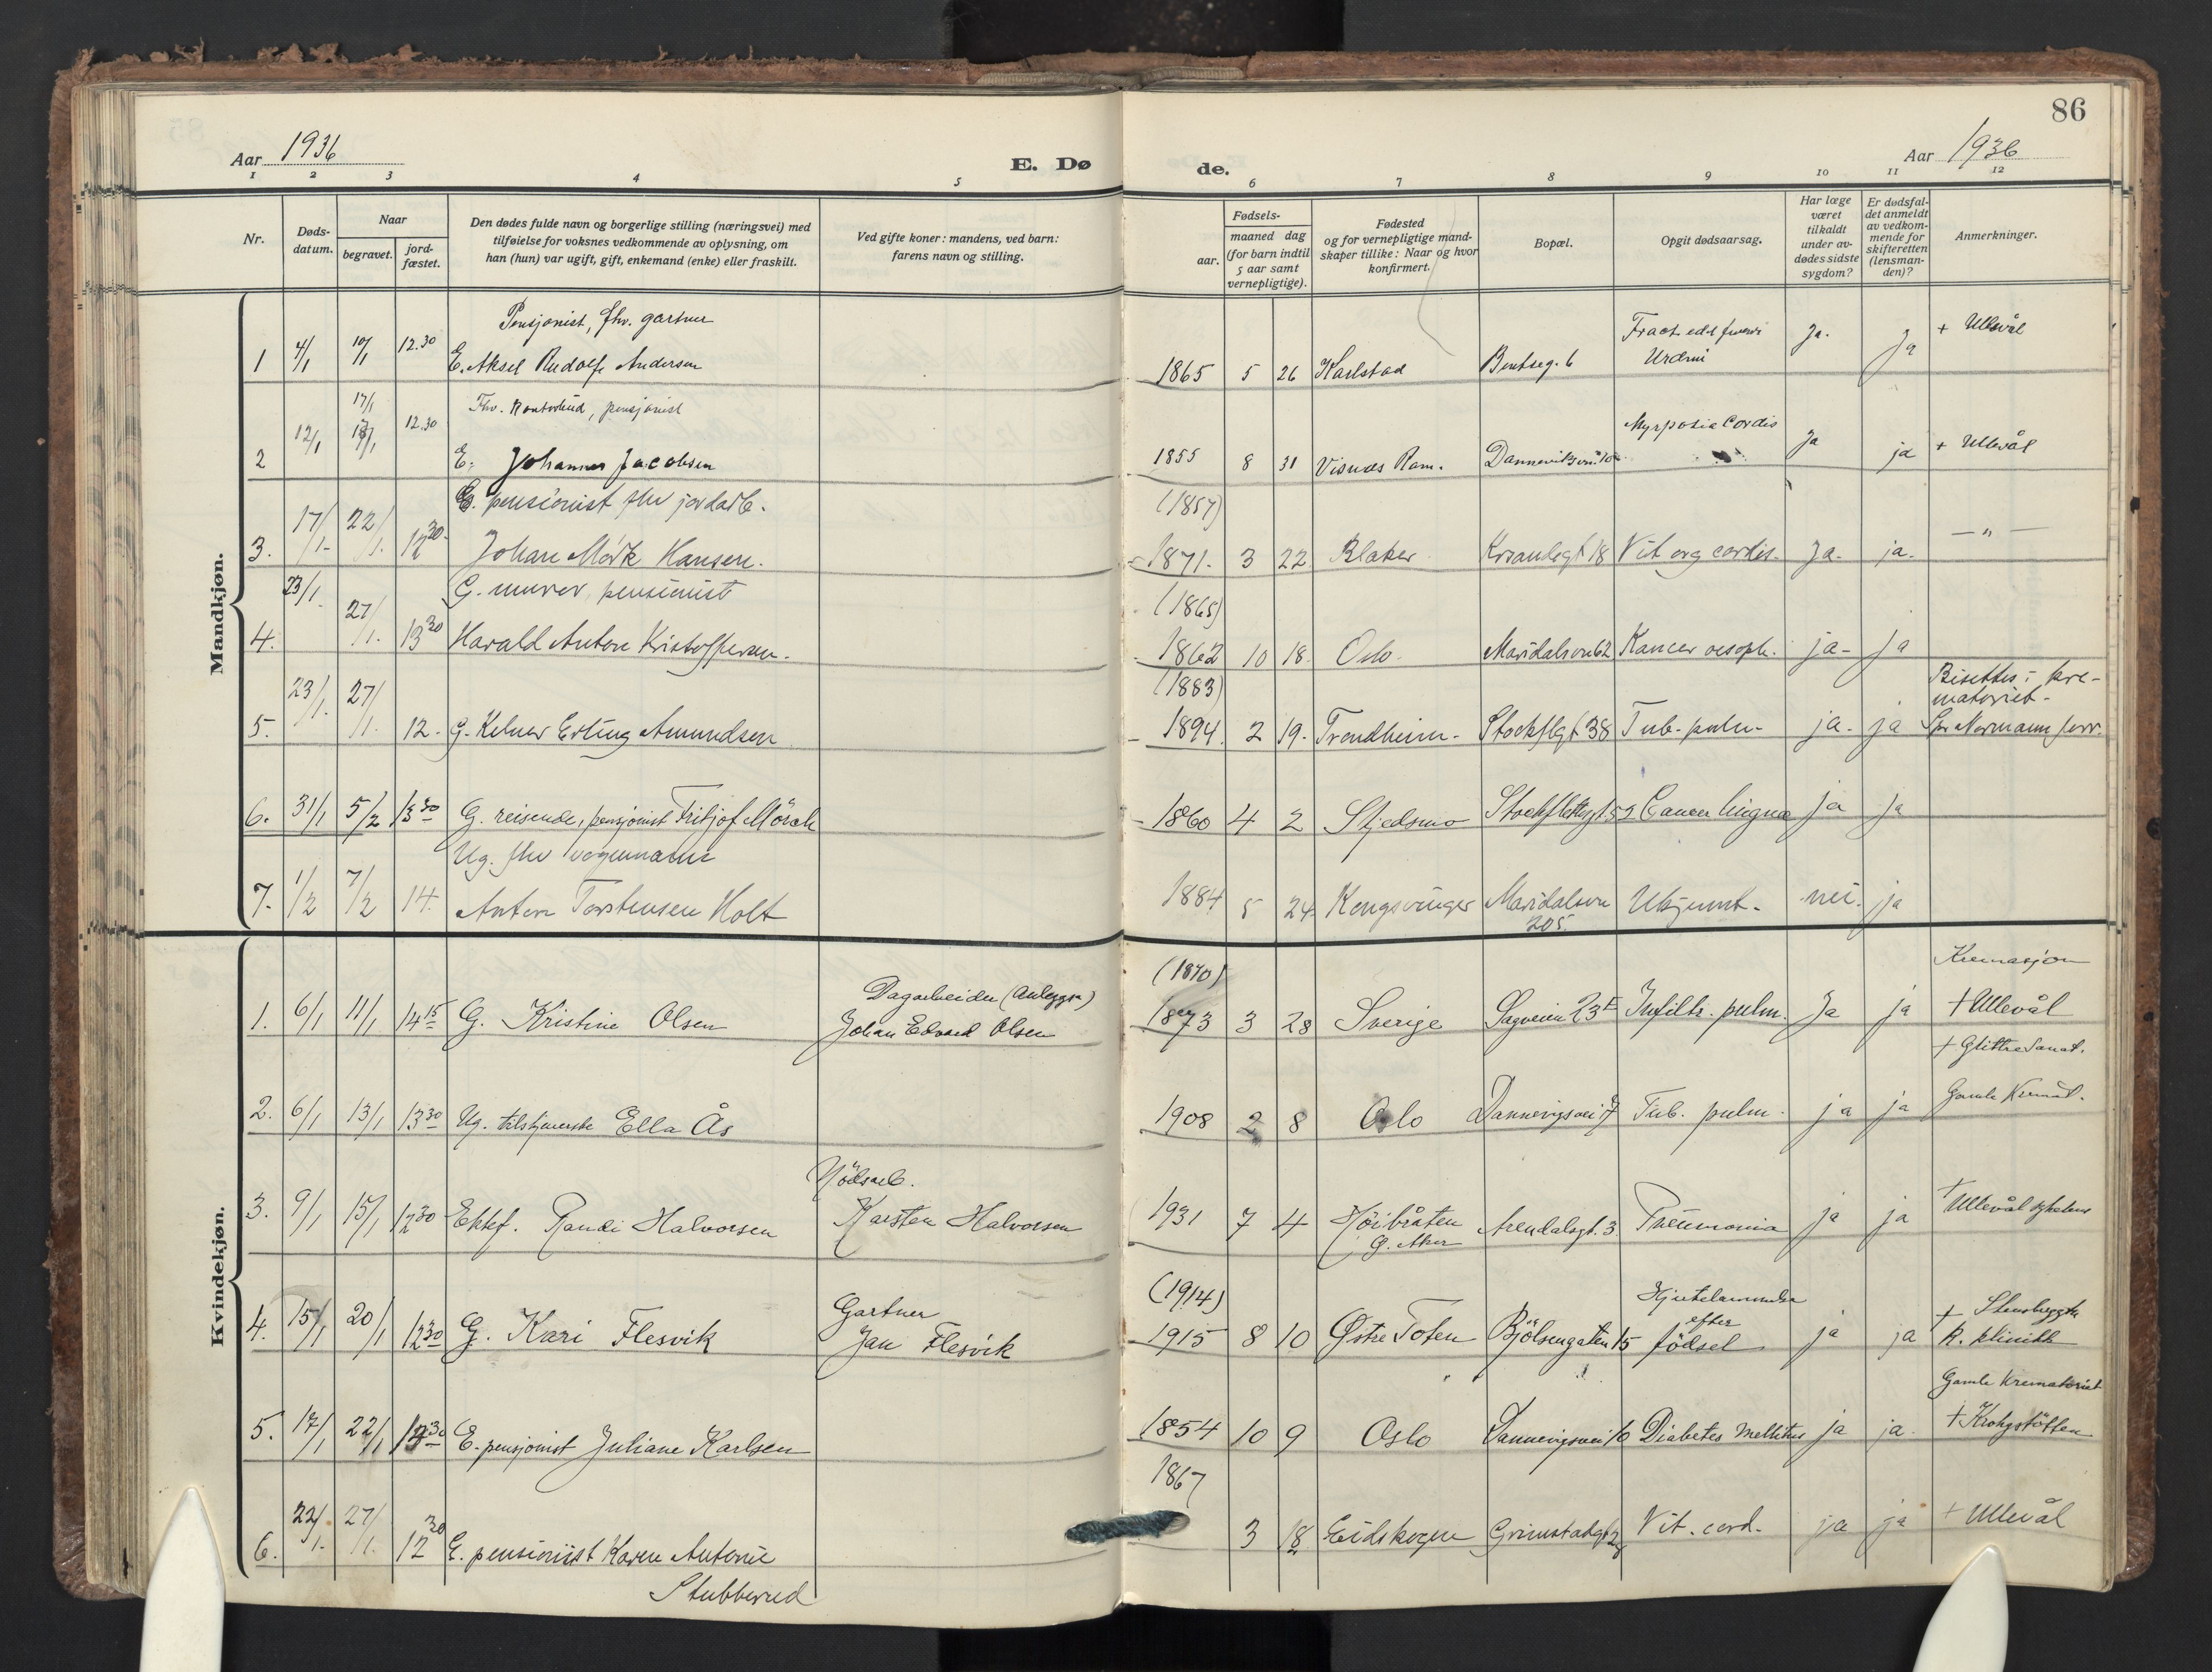 86
Aar 1936
E. Dø
de.
Aar 1936
1 2 3 4 5 6 7 8 9 10 11 12
Nr.
Døds-
datum.
Naar
begravet.
jord-
fæstet.
Den dødes fulde navn og borgerlige stilling (næringsvei) med
tilføielse for voksnes vedkommende av oplysning, om
han (hun) var ugift, gift, enkemand (enke) eller fraskilt.
Ved gifte koner: mandens, ved barn:
farens navn og stilling.
Fødsels-
aar.
maaned dag
(for barn indtil
5 aar samt
vernepligtige).
Fødested
og for vernepligtige mand-
skaper tillike: Naar og hvor
konfirmert.
Bopæl.
Opgit dødsaarsag.
Har læge
været
tilkaldt
under av-
dødes sidste
sygdom?
Er dødsfal-
det anmeldt
av vedkom-
mende for
skifteretten
(lensman-
den)?
Anmerkninger.
Mandkjøn.
Pensjonist, fhv. gartner
1 4/1 10/1 12.30 E. Aksel Rudolf Andersen 1865 5 26 Karlstad Bentseg. 6 Fract. Ja. Ja + Ullevål
17/1
Fhv. kontorbud, pensjonist
2 12/1 12.30 E. Johannes Jacobsen 1855 8 31 Visnes Ram. Danneviksvn. 10 Cordis Ja ja + Ullevål
E. pensionist fhv jordarb. (1857)
3. 17/1- 22/1. 12 30 Johan Mörk Hansen. 1871. 3 22 Blaker Krsandsgt 18 Vit org cordis. Ja. ja. —"—
G. murer, pensionist (1865)
4. 23/1. 27/1. 13 30 Harald Anton Kristoffersen. 1862 10 18. Oslo. Maridalsvn 62 Kancer oesoph. ja- Ja
(1883) Bisettes i kre-
matoriet-
5. 23/1. 27/1. 12. G. Kelner Erling Amundsen 1894. 2 19. Trondheim. Stockflgt 38 Tub. pulm- ja. ja Spr Normann forr.
6. 31/1 5/2 13 30 G. reisende, pensjonist Fritjof Mörch 1860 4 2 Skjedsmo Stockflethsgt. 52 Cancer lingua ja ja
Ug. fhv vognmann
7. 1/2 7/2 14. Anton Torstensen Holt 1884 5 24 Kongsvinger Maridalsvn 205. Ukjennt. nei. ja
Kvindekjøn.
(1870) Kremasjon
Dagarbeider (Anleggs)
1. 6/1 11/1 14 15 G. Kristine Olsen Johan Edvard Olsen 1873 3 28 Sverige Sagveien 23 I Infiltr. pulm. Ja ja + Ullevål
+ Glittre Sanat.
2. 6/1 13/1 13 30 Ug. Ella Ås 1908 2 8 Oslo Dannevigsvei 7 Tub. pulm. ja ja Gamle Kremat.
Nödsarb.
3. 9/1 15/1 12 30 Ektef. Randi Halvorsen Karsten Halvorsen 1931 7 4 Höibråten Ö. Aker Arendalsgt. 3 Pneumonia ja ja + Ullevål sykehus
Gartner (1914) Hjertelammelse
efter + Stensberggts
4. 15/1 20/1 12 30 G. Kari Flesvik Jan Flesvik 1915 8 10 Østre Toten Bjölsengaten 15 födsel ja ja K. klinikk
Gamle Krematoriet
5. 17/1 22/1 E. pensjonist Juliane Karlsen 1854 10 9 Oslo Dannevigsvei 10 Diabetes Mellitus ja ja. + Krohgstötten
1867
6. 22/1. 27/1. 12 30 E. pensionist Karen Antonie Stubberud 3 18 Eidskogen Grimstadgt Vit. cord. ja ja + Ullevål